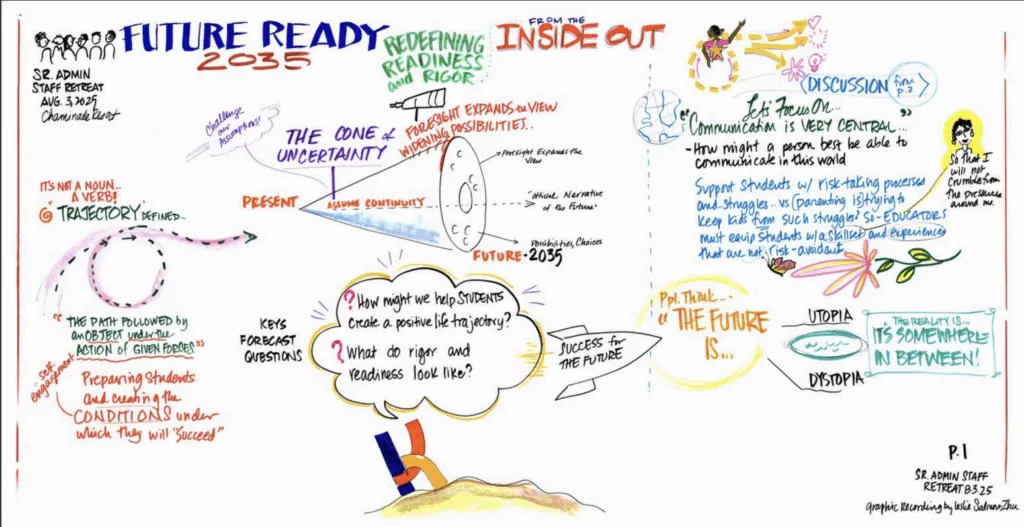 FUTURE READY
2035
REDEFINING
READINESS
and RIGOR
FROM THE
INSIDE OUT
SR. ADMIN
STAFF RETREAT
AUG. 3, 2025
Chaminade Resort
Challenge
our
Assumptions!
THE CONE of
UNCERTAINTY
FORESIGHT EXPANDS the VIEW
WIDENING POSSIBILITIES..
PRESENT
ASSUME CONTINUITY
Foresight Expands the
View
"Official Narrative
of the Future"
Possibilities, Choices
FUTURE • 2035
IT'S NOT A NOUN...
A VERB!
"TRAJECTORY" DEFINED...
"THE PATH FOLLOWED by
an OBJECT under the
ACTION OF GIVEN FORCES"
"self-
engagement"
Preparing Students
and creating the
CONDITIONS under
which they will "Succeed"
KEYS
FORECAST
QUESTIONS
? How might we help STUDENTS
Create a positive life trajectory?
? What do rigor and
readiness look like?
SUCCESS for
THE FUTURE
DISCUSSION
from
p.2
Let's Focus On...
"Communication is VERY CENTRAL..."
- How might a person best be able to
communicate in this world
Support Students w/ risk-taking processes
and struggles.. vs (parenting is) trying to
keep kids from such struggles? So - EDUCATORS
must equip Students w/a skillset and experiences
that are not risk-avoidant
So that I
will not
crumble from
the pressure
around me.
Ppl. Think...
"THE FUTURE
IS...
UTOPIA
DYSTOPIA
THE REALITY IS...
IT'S SOMEWHERE
IN BETWEEN!
P. 1
SR. ADMIN STAFF
RETREAT 8.3.25
Graphic Recording by Leslie Salmon-Zhu